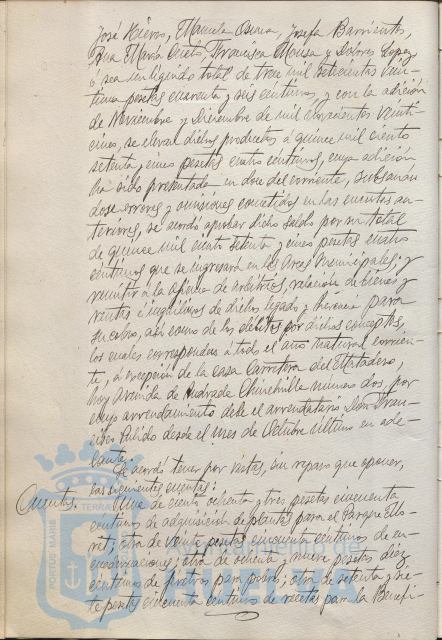 José Hierro, Manuela Osuna, Josefa Barrientos,
Ana María Nieto, Francisca Mousa y Dolores Lopez
ó sea un líquido total de trece mil setecientas vein-
tiuna pesetas cuarenta y seis centimos, y con la adición
de Noviembre y Diciembre de mil novecientos veinti-
cinco, se elevan dichos productos á quince mil ciento
setenta y cinco pesetas cuatro centimos, cuya adición
ha sido presentada en doce del corriente, subsanan
dose errores y omisiones cometidos en las cuentas an-
teriores, se acordó aprobar dicho saldo por su total
de quince mil ciento setenta y cinco pesetas cuatro
centimos que se ingresará en las Arcas Municipales; y
remitir á la oficina de arbitrios, relación de bienes y
rentas é inquilinos de dicho legado y herencia para
su cobro, así como de los débitos por dichos conceptos,
los cuales corresponden á todo el año natural corrien-
te, á excepción de la casa Carretera del Matadero,
hoy Avenida de Andrade Chinchilla número dos, por
cuyo arrendamiento debe el arrendatario Don Fran-
cisco Pulido desde el mes de Octubre último en ade-
lante.
Se acordó tener por vistas, sin reparo que oponer,
las siguientes cuentas:
Cuentas.
Una de ciento ochenta y tres pesetas cincuenta
centimos de adquisición de plantas para el Parque Mo-
ret; otra de veinte pesetas cincuenta centimos de en-
cuadernaciones; otra de ochenta y nueve pesetas diez
centimos de para pobres; otra de setenta y sie-
te pesetas cincuenta centimos de recetas para la Benefi-
PORTUS MARIS
TERRAE
Ayuntamiento de
HUELVA